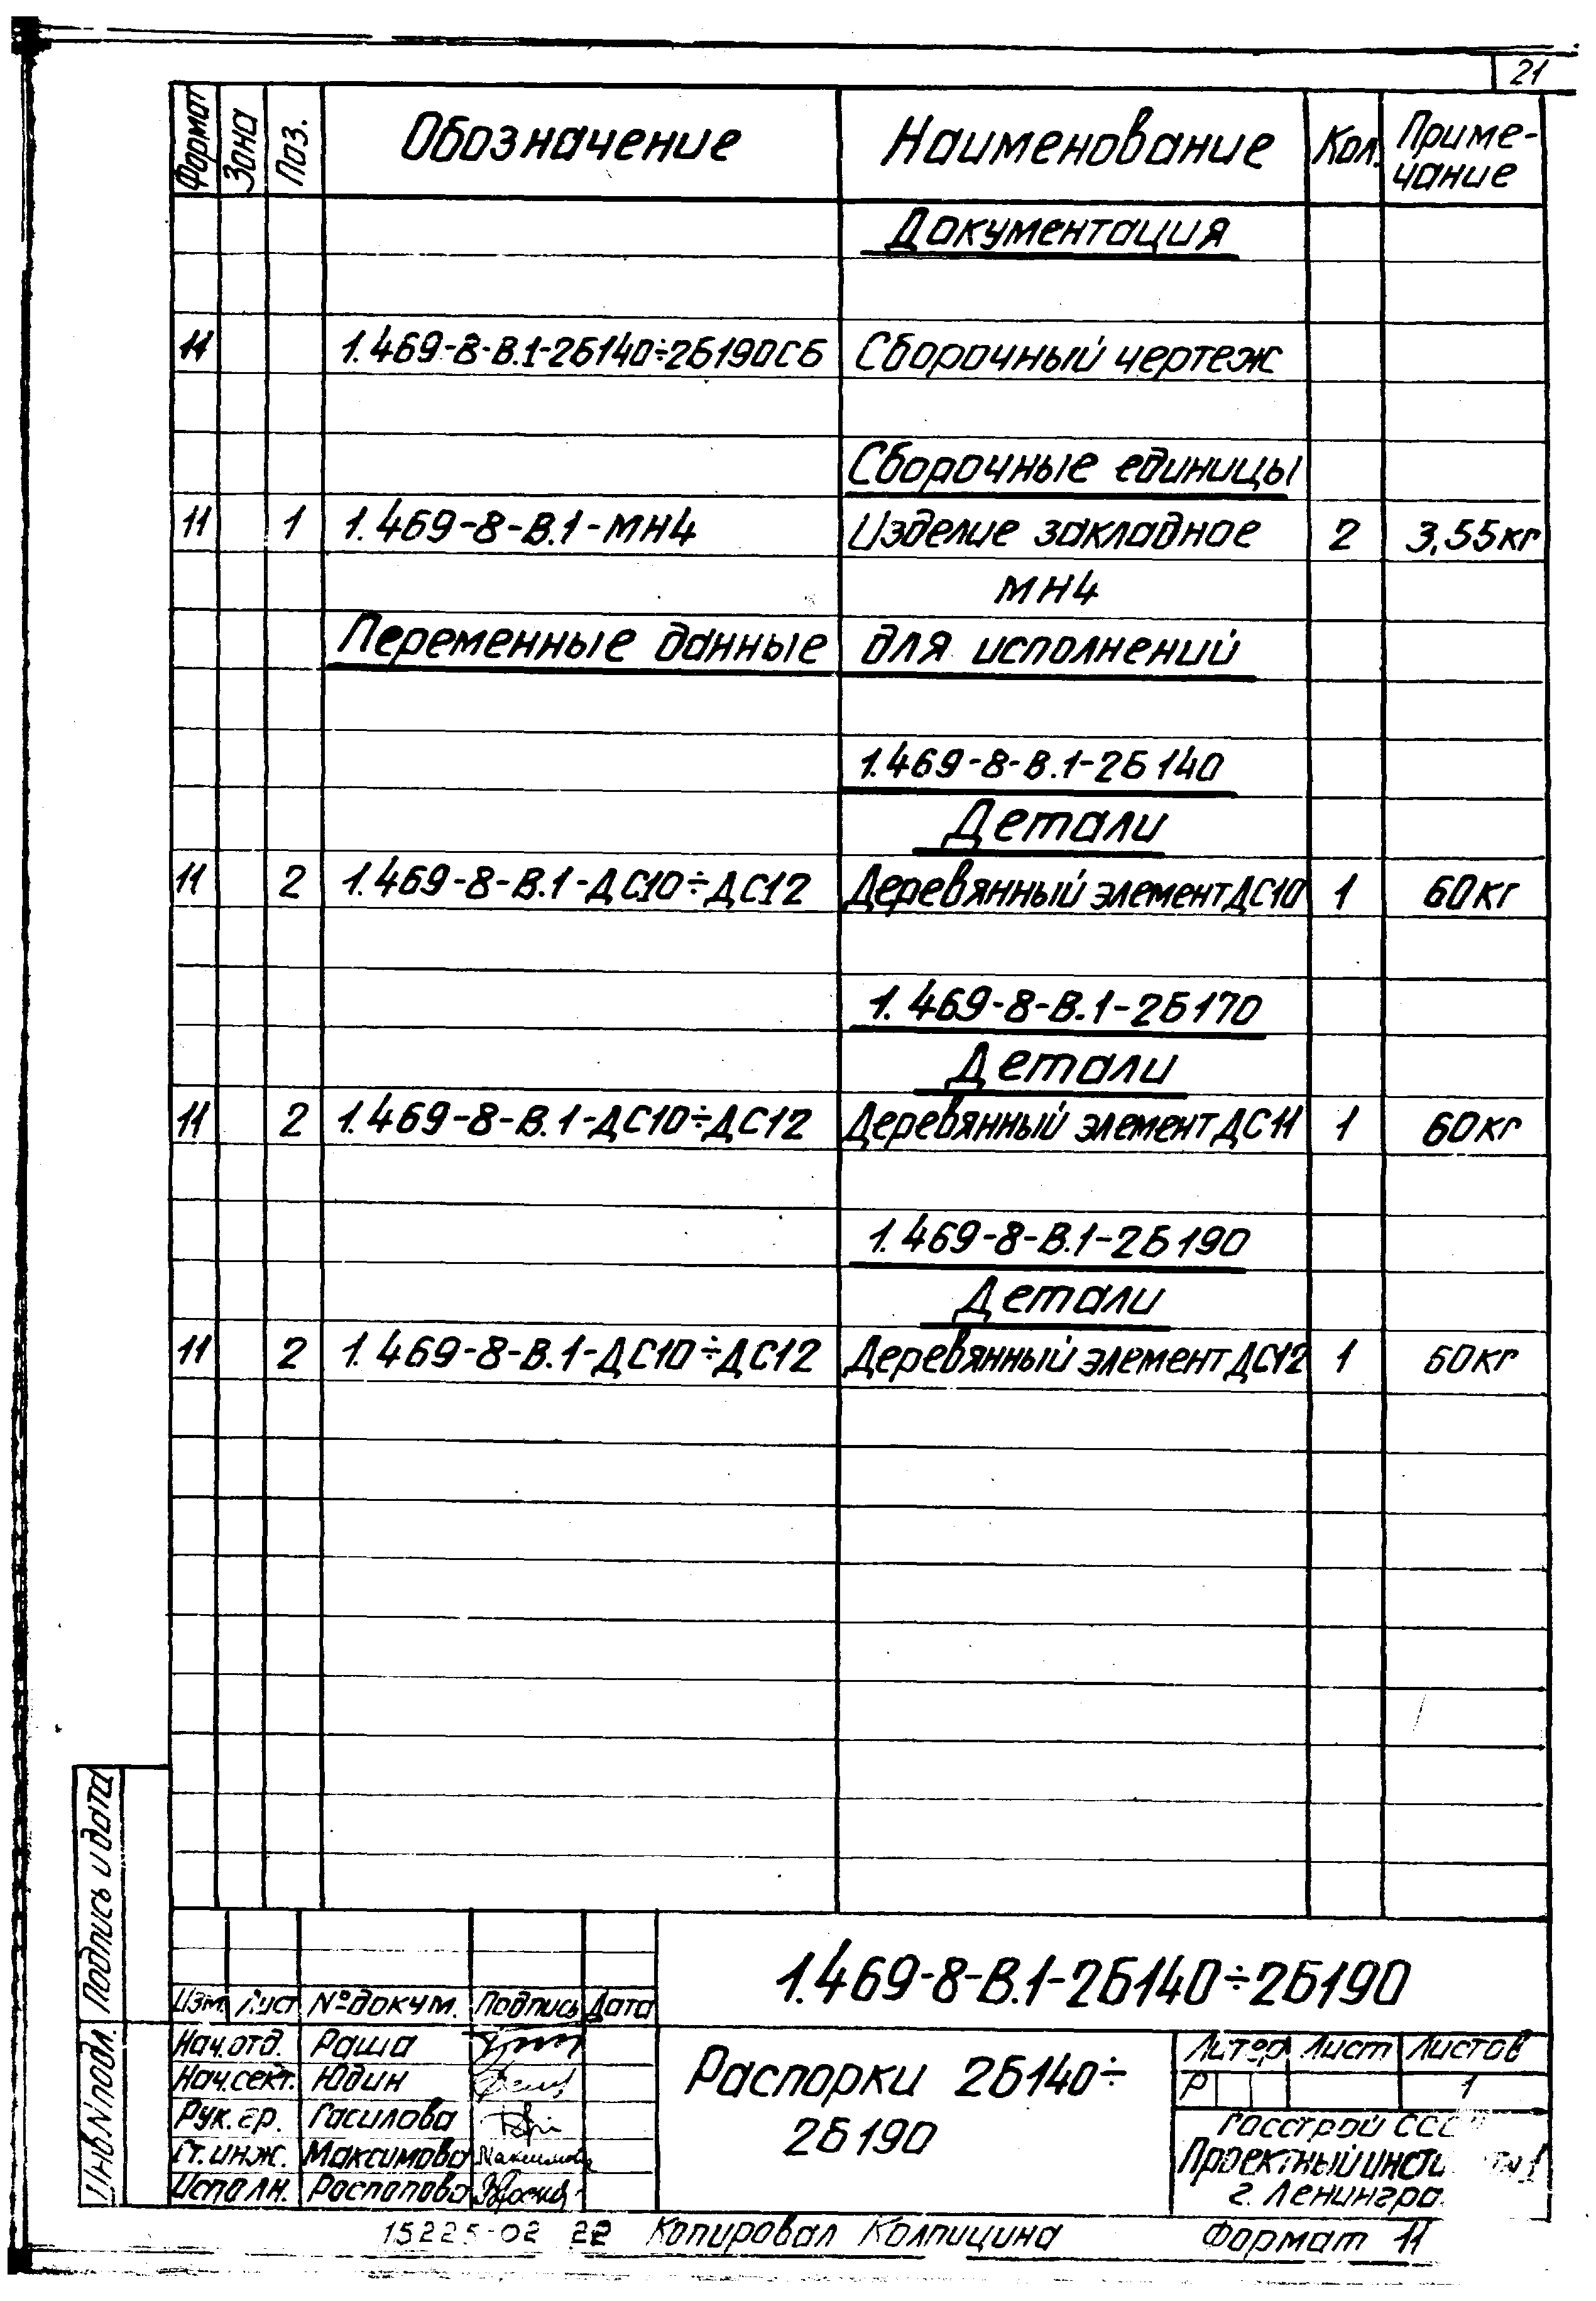 21
Формат Зона Поз. Обозначение Наименование Кол. Приме-
чание
Документация
11 1.469-8-В.1-2Б140÷2Б190СБ Сборочный чертеж
Сборочные единицы
11 1 1.469-8-В.1-МН4 Изделие закладное 2 3,55кг
МН4
Переменные данные для исполнений
1.469-8-В.1-2Б140
Детали
11 2 1.469-8-В.1-ДС10÷ДС12 Деревянный элемент ДС10 1 60кг
1.469-8-В.1-2Б170
Детали
11 2 1.469-8-В.1-ДС10÷ДС12 Деревянный элемент ДС11 1 60кг
1.469-8-В.1-2Б190
Детали
11 2 1.469-8-В.1-ДС10÷ДС12 Деревянный элемент ДС12 1 60кг
Подпись и дата
Инв N подл.
1.469-8-В.1-2Б140÷2Б190
Изм. Лист №докум. Подпись Дата
Нач.отд. Раша
Нач.сект. Юдин
Рук.гр. Гасилова
Ст.инж. Максимова Максимова
Исполн. Распопова
Распорки 2Б140÷
2Б190
Литер Лист Листов
Р 1
Госстрой СССР
Проектный инст
г. Ленингра
15225-02 22 Копировал Колпицина Формат 11